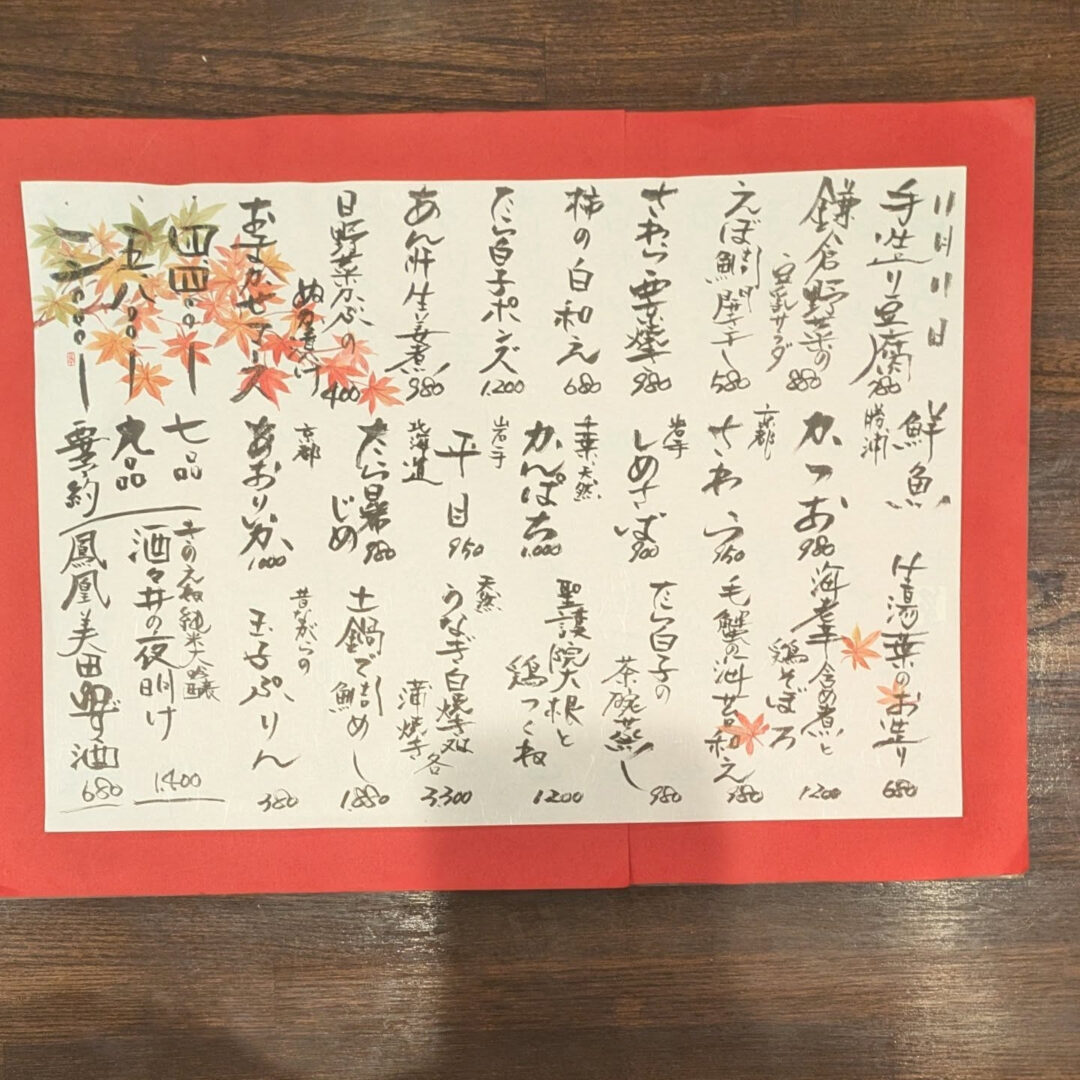 11月11日
手造り豆腐
780
鎌倉野菜の
豆乳サラダ
880
えぼ鯛開き干し
580
さわら西京焼き
980
柿の白和え
680
たら白子ポンズ
1.200
あん肝生姜煮
980
日野菜かぶの
ぬか漬け
400
おまかせコース
四四〇〇ー
五八〇〇ー
鮮魚
勝浦
かつお
980
京都
さわら
950
岩手
しめさば
900
千葉、天然
かんぱち
1.000
岩手
平目
950
北海道
たら昆布
じめ
980
京都
あおりいか
1000
七品
九品
要予約
汁湯葉のお造り
680
海老芋含め煮と
鶏そぼろ
1200
毛蟹の海苔和え
980
たら白子の
茶碗蒸し
980
聖護院大根と
鶏つくね
1200
天然
うなぎ白焼き又は
蒲焼き各
3.300
土鍋で鯛めし
1.880
昔ながらの
玉子ぷりん
380
きのえね純米大吟醸
酒々井の夜明け
1.400
鳳凰美田ゆず酒
680